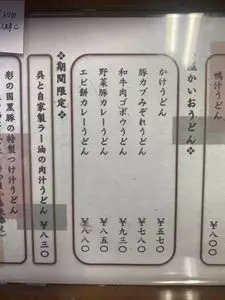 鴨汁うどん
¥八〇〇
温かいおうどん※
かけうどん ¥五七〇
豚カブみぞれうどん ¥七八〇
和牛肉ゴボウうどん ¥九三〇
野菜豚カレーうどん ¥八五〇
エビ餅カレーうどん ¥八八〇
※期間限定※
呉と自家製ラー油の肉汁うどん ¥八三〇
彩の国黒豚の特製つけ汁うどん